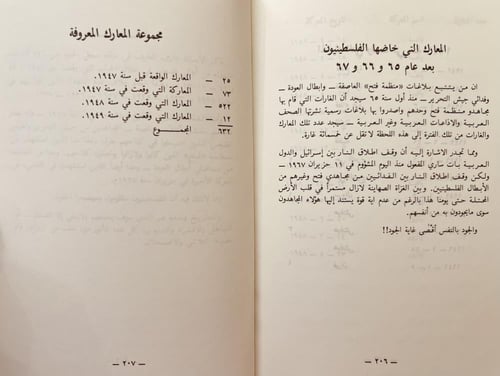 المعارك التي خاضها الفلسطينيون
بعد عام ٦٥ و ٦٦ و ٦٧
ان من يتتبع بلاغات «منظمة فتح» العاصفة ــ وابطال العودة ــ
وفدائي جيش التحرير ــ منذ أول سنة ٦٥ سيجد أن الغارات التي قام بها
مجاهدو منظمة فتح وحدهم واصدروا بها بلاغات رسمية نشرتها الصحف
العربية والاذاعات العربية وغير العربية ــ سيجد عدد تلك المعارك
والغارات من تلك الفترة إلى هذه اللحظة لا تقل عن خمسمائة غارة.
ومما تجدر الاشارة إليه أن وقف اطلاق النار بين إسرائيل والدول
العربية بات ساري المفعول منذ اليوم المشؤوم في ١١ حزيران ١٩٦٧
ولكن وقف اطلاق النار بين الفدائيين من مجاهدي فتح وغيرهم من
الأبطال الفلسطينيين. وبين الغزاة الصهاينة لازال مستمراً في قلب الأرض
المحتلة حتى يومنا هذا بالرغم من عدم اية قوة يستند إليها هؤلاء المجاهدون
سوى مايجودون به من أنفسهم.
والجود بالنفس أقصى غاية الجود!!
ــ ٢٠٦ ــ
مجموعة المعارك المعروفة
المعارك الواقعة قبل سنة ١٩٤٧. ــ ٢٥
المعاركة التي وقعت في سنة ١٩٤٧. ــ ٧٣
المعارك التي وقعت في سنة ١٩٤٨. ــ ٥٢٢
المعارك التي وقعت في سنة ١٩٤٩. ــ ١٢
المجموع ٦٣٢
ــ ٢٠٧ ــ